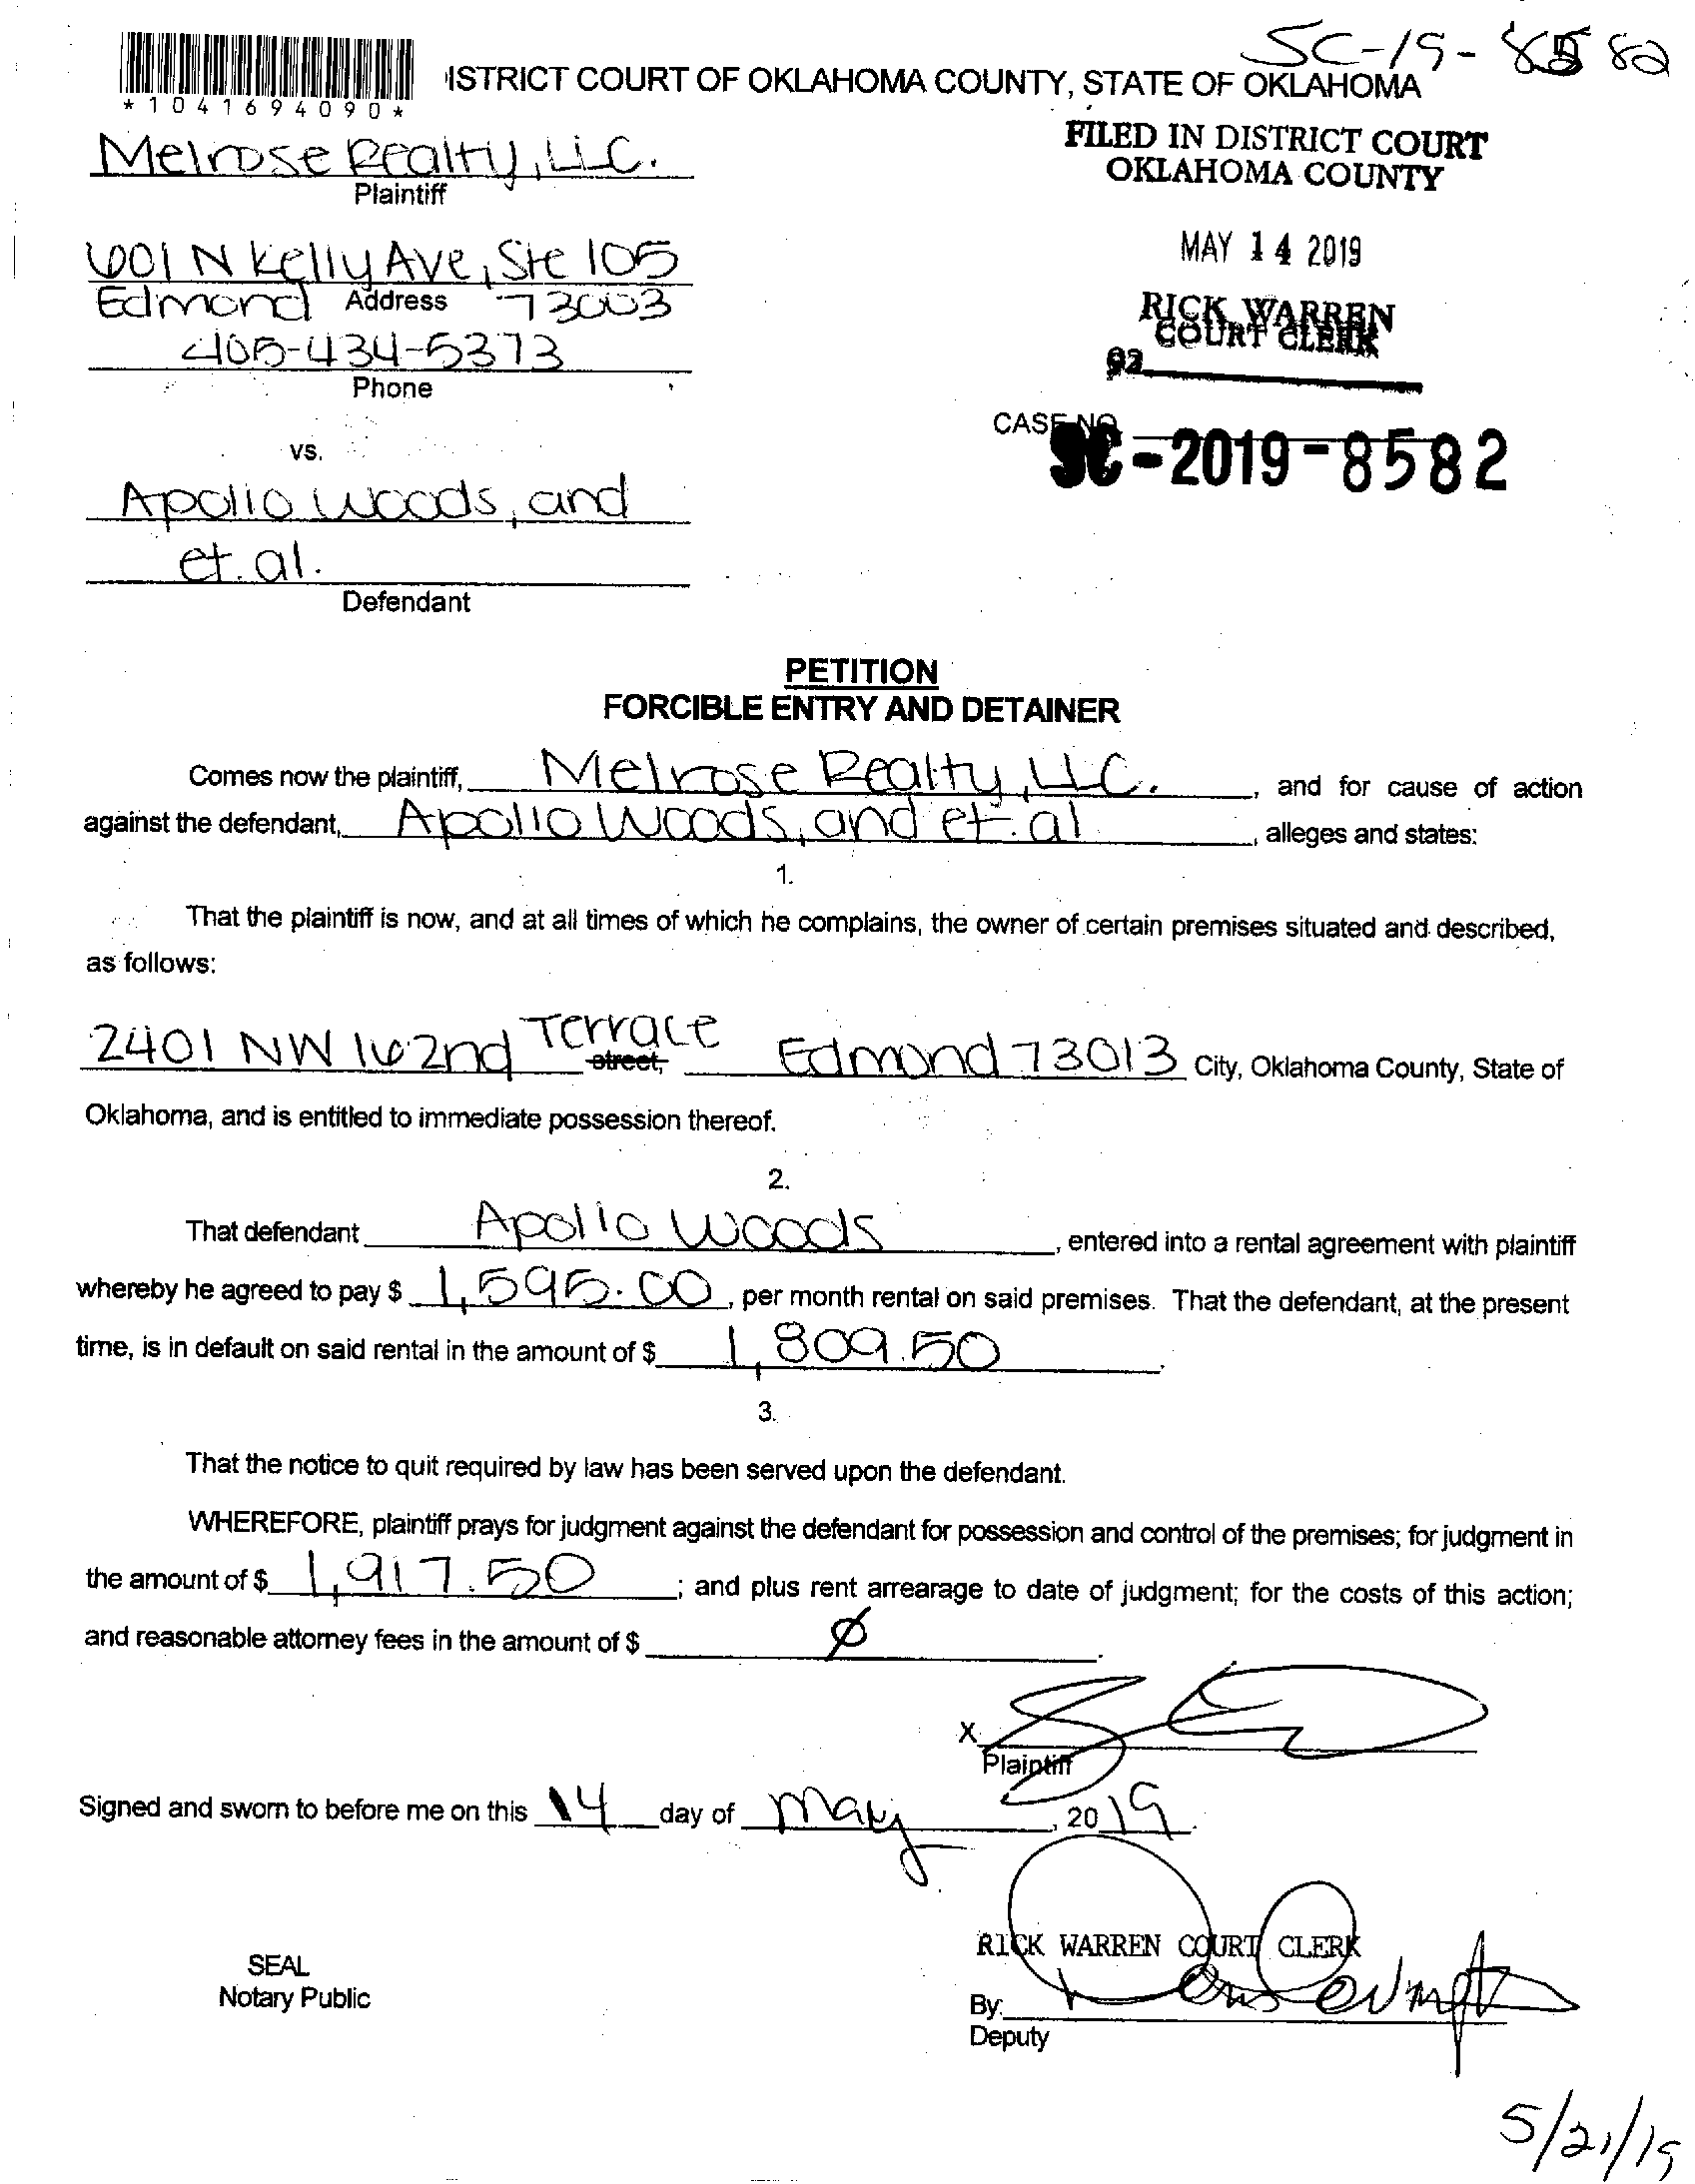 SC-19-8582
*1041694090*
ISTRICT COURT OF OKLAHOMA COUNTY, STATE OF OKLAHOMA
FILED IN DISTRICT COURT
OKLAHOMA COUNTY
Melrose Realty, LLC.
Plaintiff
MAY 14 2019
601 N Kelly Ave, Ste 105
Edmond Address 73003
RICK WARREN
COURT CLERK
92
405-434-5373
Phone
CASE NO.
SC-2019-8582
vs.
Apollo Woods, and
et. al.
Defendant
PETITION
FORCIBLE ENTRY AND DETAINER
Comes now the plaintiff, Melrose Realty, LLC., and for cause of action
against the defendant, Apollo Woods, and et. al, alleges and states:
1.
That the plaintiff is now, and at all times of which he complains, the owner of certain premises situated and described,
as follows:
2401 NW 162nd Terrace street, Edmond 73013 City, Oklahoma County, State of
Oklahoma, and is entitled to immediate possession thereof.
2.
That defendant Apollo Woods, entered into a rental agreement with plaintiff
whereby he agreed to pay $ 1,595.00, per month rental on said premises. That the defendant, at the present
time, is in default on said rental in the amount of $ 1,809.50.
3.
That the notice to quit required by law has been served upon the defendant.
WHEREFORE, plaintiff prays for judgment against the defendant for possession and control of the premises; for judgment in
the amount of $ 1,917.50; and plus rent arrearage to date of judgment; for the costs of this action;
and reasonable attorney fees in the amount of $ Ø.
X
Plaintiff
Signed and sworn to before me on this 14 day of May, 2019.
RICK WARREN COURT CLERK
SEAL
Notary Public
By:
Deputy
5/21/19